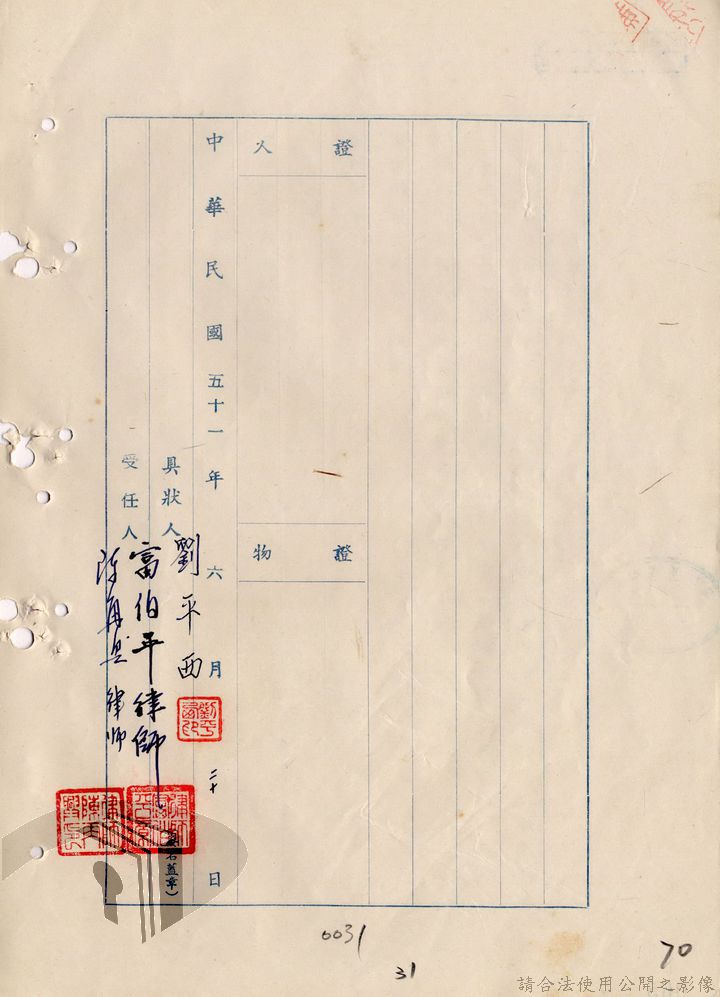 證人
證物
中華民國五十一年六月二十日
具狀人 劉平西
受任人 富伯平律師
律師
名蓋章）
0031
31
70
請合法使用公開之影像